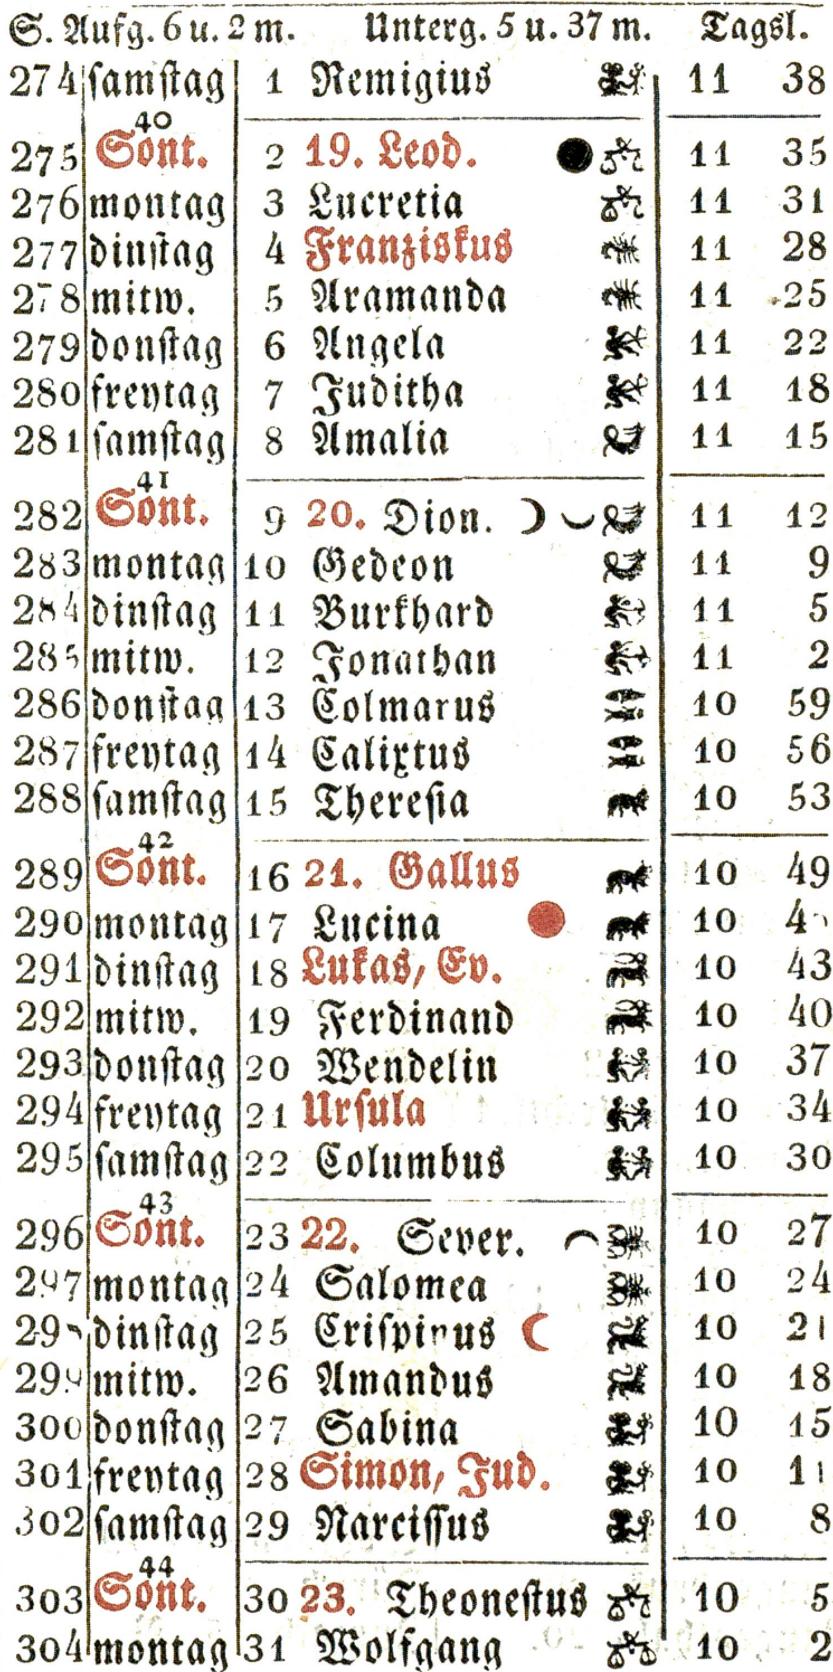 S. Aufg. 6 u. 2 m. Unterg. 5 u. 37 m. Tagsl.
274 samstag 1 Remigius 11 38
40
275 Sont. 2 19. Leod. 11 35
276 montag 3 Lucretia 11 31
277 dinstag 4 Franziskus 11 28
278 mitw. 5 Aramanda 11 25
279 donstag 6 Angela 11 22
280 freytag 7 Juditha 11 18
281 samstag 8 Amalia 11 15
41
282 Sont. 9 20. Dion. 11 12
283 montag 10 Gedeon 11 9
284 dinstag 11 Burkhard 11 5
285 mitw. 12 Jonathan 11 2
286 donstag 13 Colmarus 10 59
287 freytag 14 Calixtus 10 56
288 samstag 15 Theresia 10 53
42
289 Sont. 16 21. Gallus 10 49
290 montag 17 Lucina 10
291 dinstag 18 Lukas, Ev. 10 43
292 mitw. 19 Ferdinand 10 40
293 donstag 20 Wendelin 10 37
294 freytag 21 Ursula 10 34
295 samstag 22 Columbus 10 30
43
296 Sont. 23 22. Sever. 10 27
297 montag 24 Salomea 10 24
dinstag 25 Crispinus 10 21
299 mitw. 26 Amandus 10 18
300 donstag 27 Sabina 10 15
301 freytag 28 Simon, Jud. 10 11
302 samstag 29 Narcissus 10 8
44
303 Sont. 30 23. Theonestus 10 5
304 montag 31 Wolfgang 10 2